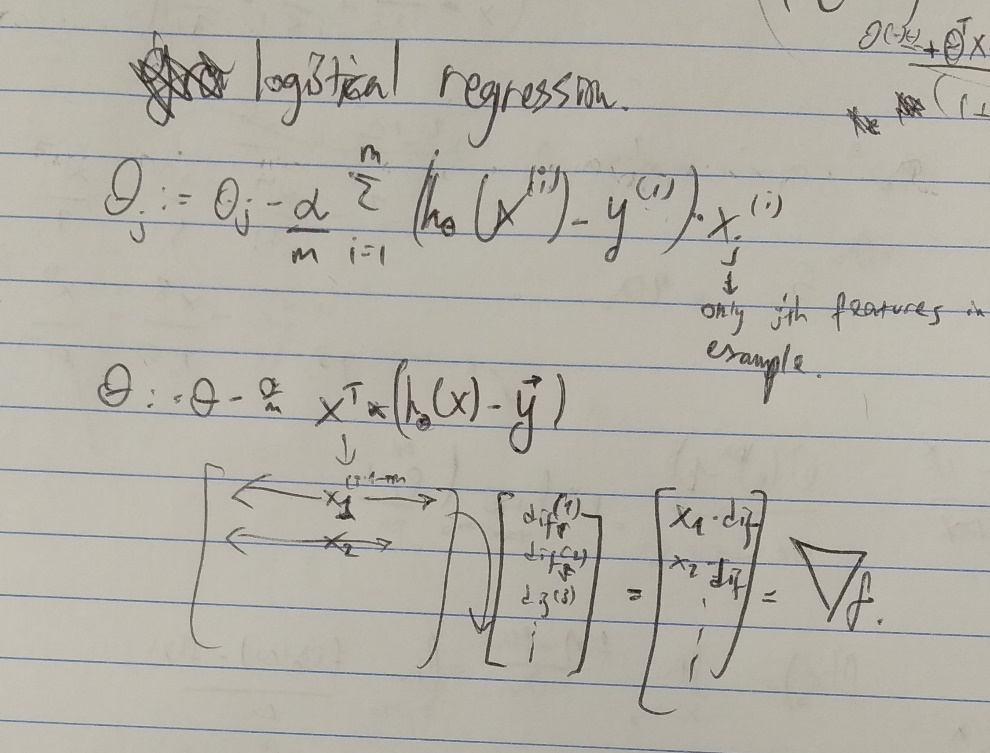 logistical regression.
θⱼ := θⱼ - α/m Σ_{i=1}^{m} (h_θ(x^(i)) - y^(i)) · xⱼ^(i)
↓
only jth features in
example.
θ := θ - α/m X^T * (h_θ(x) - y⃗)
↓
[ ← x₁ → ; ← x₂ → ] [ dif^(1) ; dif^(2) ; dif^(3) ; ⋮ ] = [ x₁ · dif ; x₂ · dif ; ⋮ ] = ∇f.